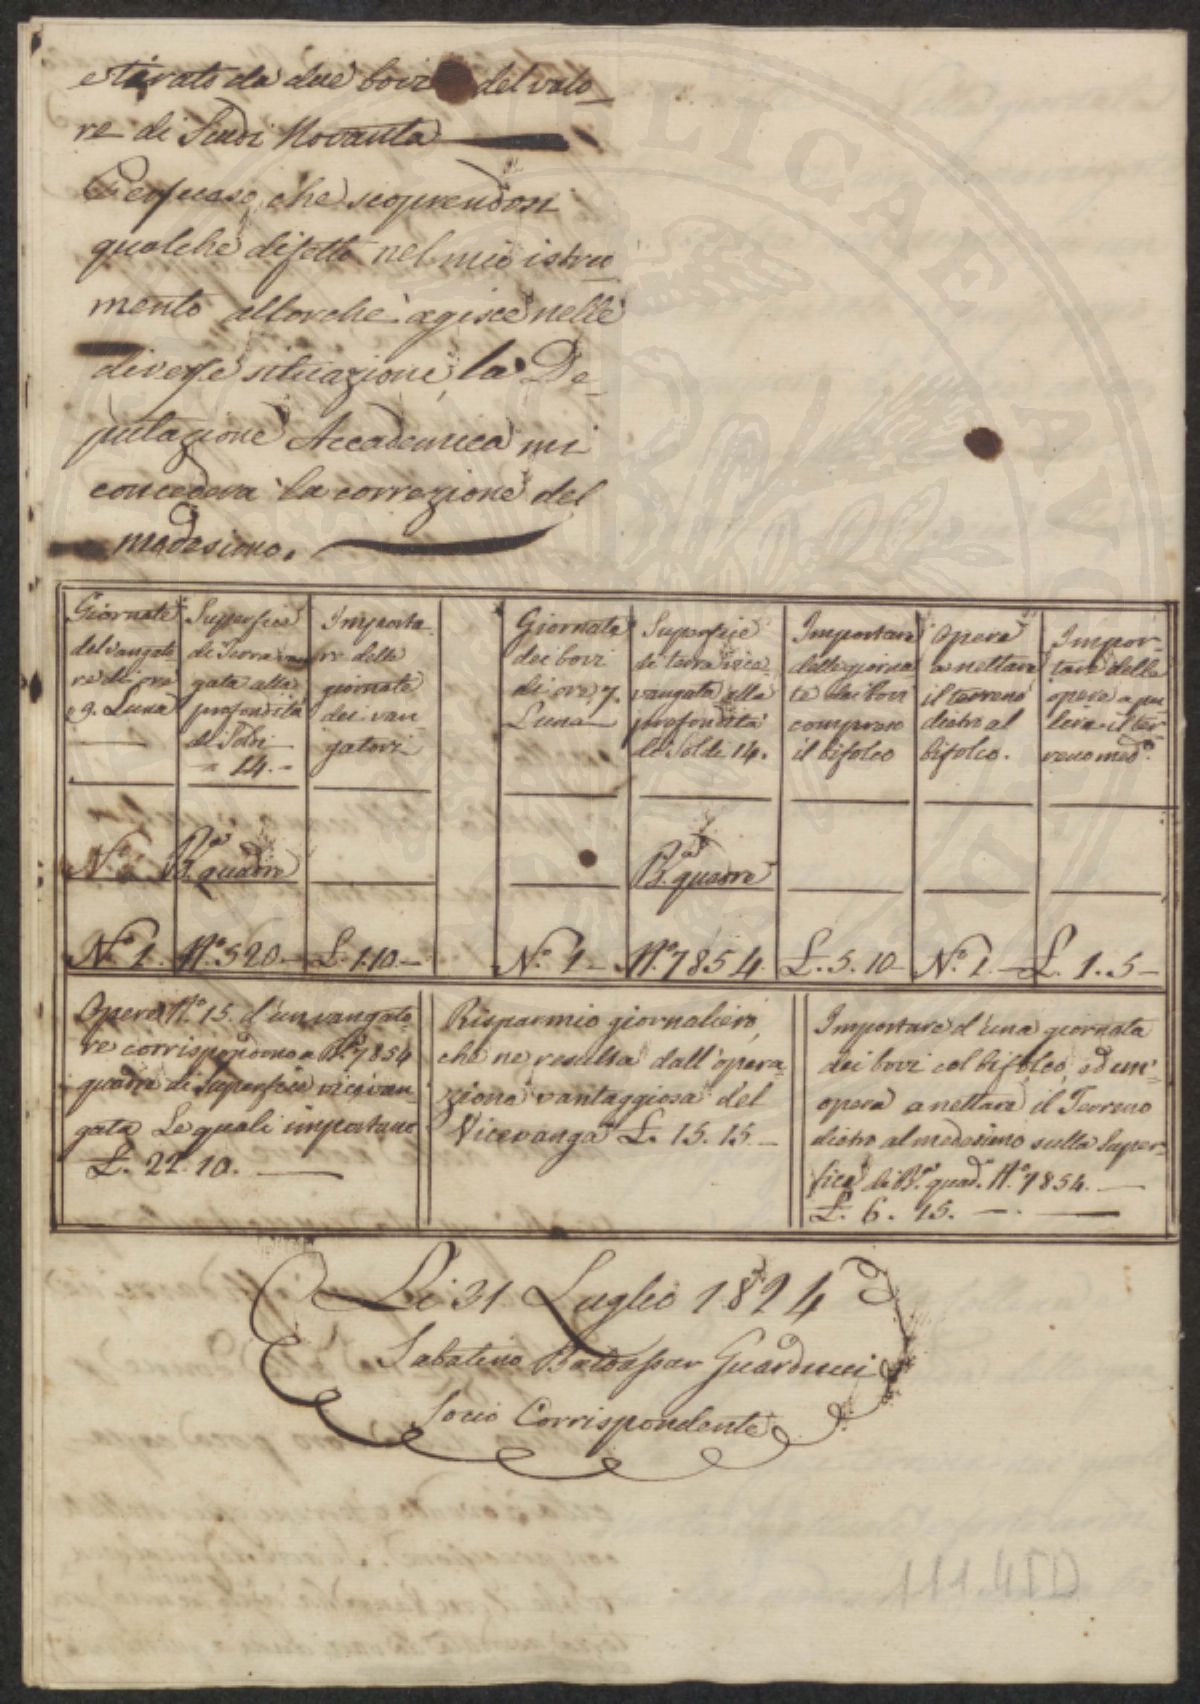 e tirato da due bovi del valo-
re di Scudi Novanta
Per caso, che scoprendosi
qualche difetto nel mio istru-
mento allorchè agisce nelle
diverse situazioni, la De-
putazione Accademica mi
concederà la correzione del
medesimo.
Giornate
del vangato-
re di ore
9. L'una
Superficie
di Terra van
gata alla
profondità
di Soldi
14.
Importa-
re delle
giornate
dei van
gatori
Giornate
dei bovi
di ore 7.
L'una
Superficie
di terra vice-
vangata alla
profondità
di Soldi 14.
Importare
delle giorna
te dei bovi
compreso
il bifolco
Opera
a nettare
il terreno
dietro al
bifolco.
Impor-
tare delle
opere a pu-
lire il ter-
reno med.º
N.º
B.ª quadre
B.ª quadre
N.º 1.
N.º 520.
£. 1.10
N.º 1
N.º 7854.
£. 5. 10
N.º 1.
£. 1. 5
Opere N.º 15. d'un vangato-
re corrispondono a B.ª 7854
quadre di superficie vicevan-
gata Le quali importano
£. 22. 10.
Risparmio giornaliero,
che ne resulta dall'opera-
zione vantaggiosa del
Vicevanga £. 15. 15
Importare d'una giornata
dei bovi col bifolco, ed un'
opera a nettare il Terreno
dietro al medesimo sulla Super-
ficie di B.ª quad.e N.º 7854.
£. 6. 15.
Li 31 Luglio 1824
Sabatino Baldassar Guarducci
Socio Corrispondente